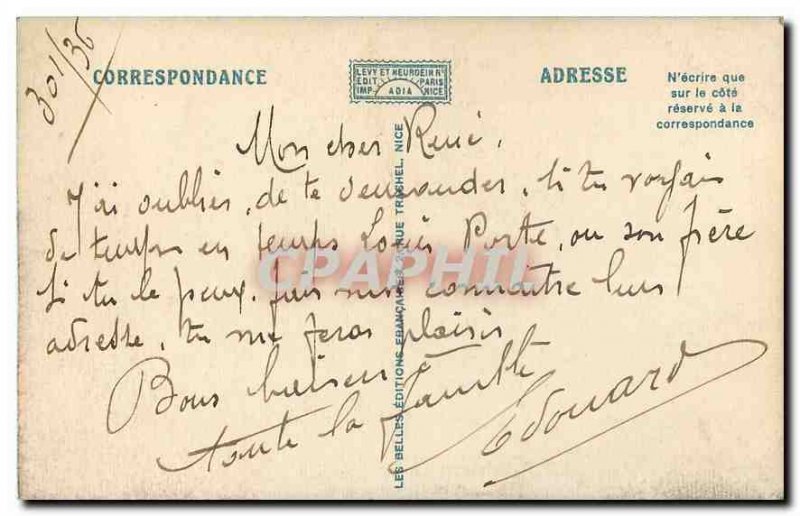 30/1/36
CORRESPONDANCE
LEVY ET NEURDEIN Rs
EDIT. PARIS
IMP. ADIA NICE
ADRESSE
N'écrire que
sur le côté
réservé à la
correspondance
Mon cher René,
J'ai oublier, de te demander, si tu voyais
de temps en temps Louis Porte, ou son frère
si tu le peux, fais moi connaître leurs
adresse, tu me feras plaisir
Bons baisers à
toute la famille
Edouard
LES BELLES ÉDITIONS FRANÇAISES, 2, RUE TRACHEL, NICE
CPAPHIL